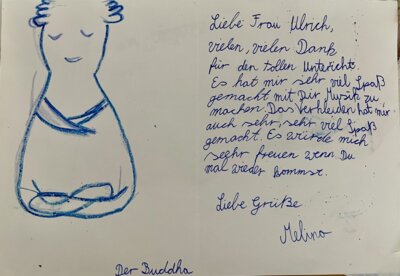 Liebe Frau Ulrich,
vielen, vielen Dank
für den tollen Unterricht.
Es hat mir sehr viel Spaß
gemacht mit Dir Musik zu
machen. Das Verkleiden hat mir
auch sehr, sehr viel Spaß
gemacht. Es würde mich
seehr freuen wenn Du
mal wieder kommst.
Liebe Grüße
Melina
Der Buddha